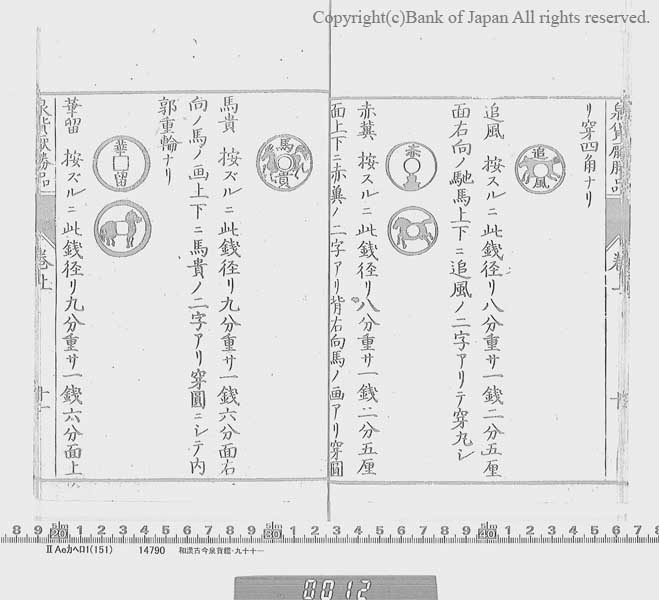 Copyright(c)Bank of Japan All rights reserved.
リ穿四角ナリ
追風
追風 按スルニ此銭径リ八分重サ一銭二分五厘
面右向ノ馳馬上下ニ追風ノ二字アリテ穿九シ
赤
赤冀 按スルニ此銭径リ八分重サ一銭二分五厘
面上下ニ赤冀ノ二字アリ背右向馬ノ画アリ穿圓
馬貴
馬貴 按ズルニ此銭径リ九分重サ一銭六分面右
向ノ馬ノ画上下ニ馬貴ノ二字アリ穿圓ニシテ内
郭重輪ナリ
華留
華留 按ズルニ此銭径リ九分重サ一銭六分面上
十一
8 9 20 1 2 3 4 5 6 7 8 9 30 1 2 3 4 5 6 7 8 9 40 1 2 3 4 5 6 7 8
ⅡAeカヘロⅠ(151) 14790 和漢古今泉貨鑑・九十十一
0012